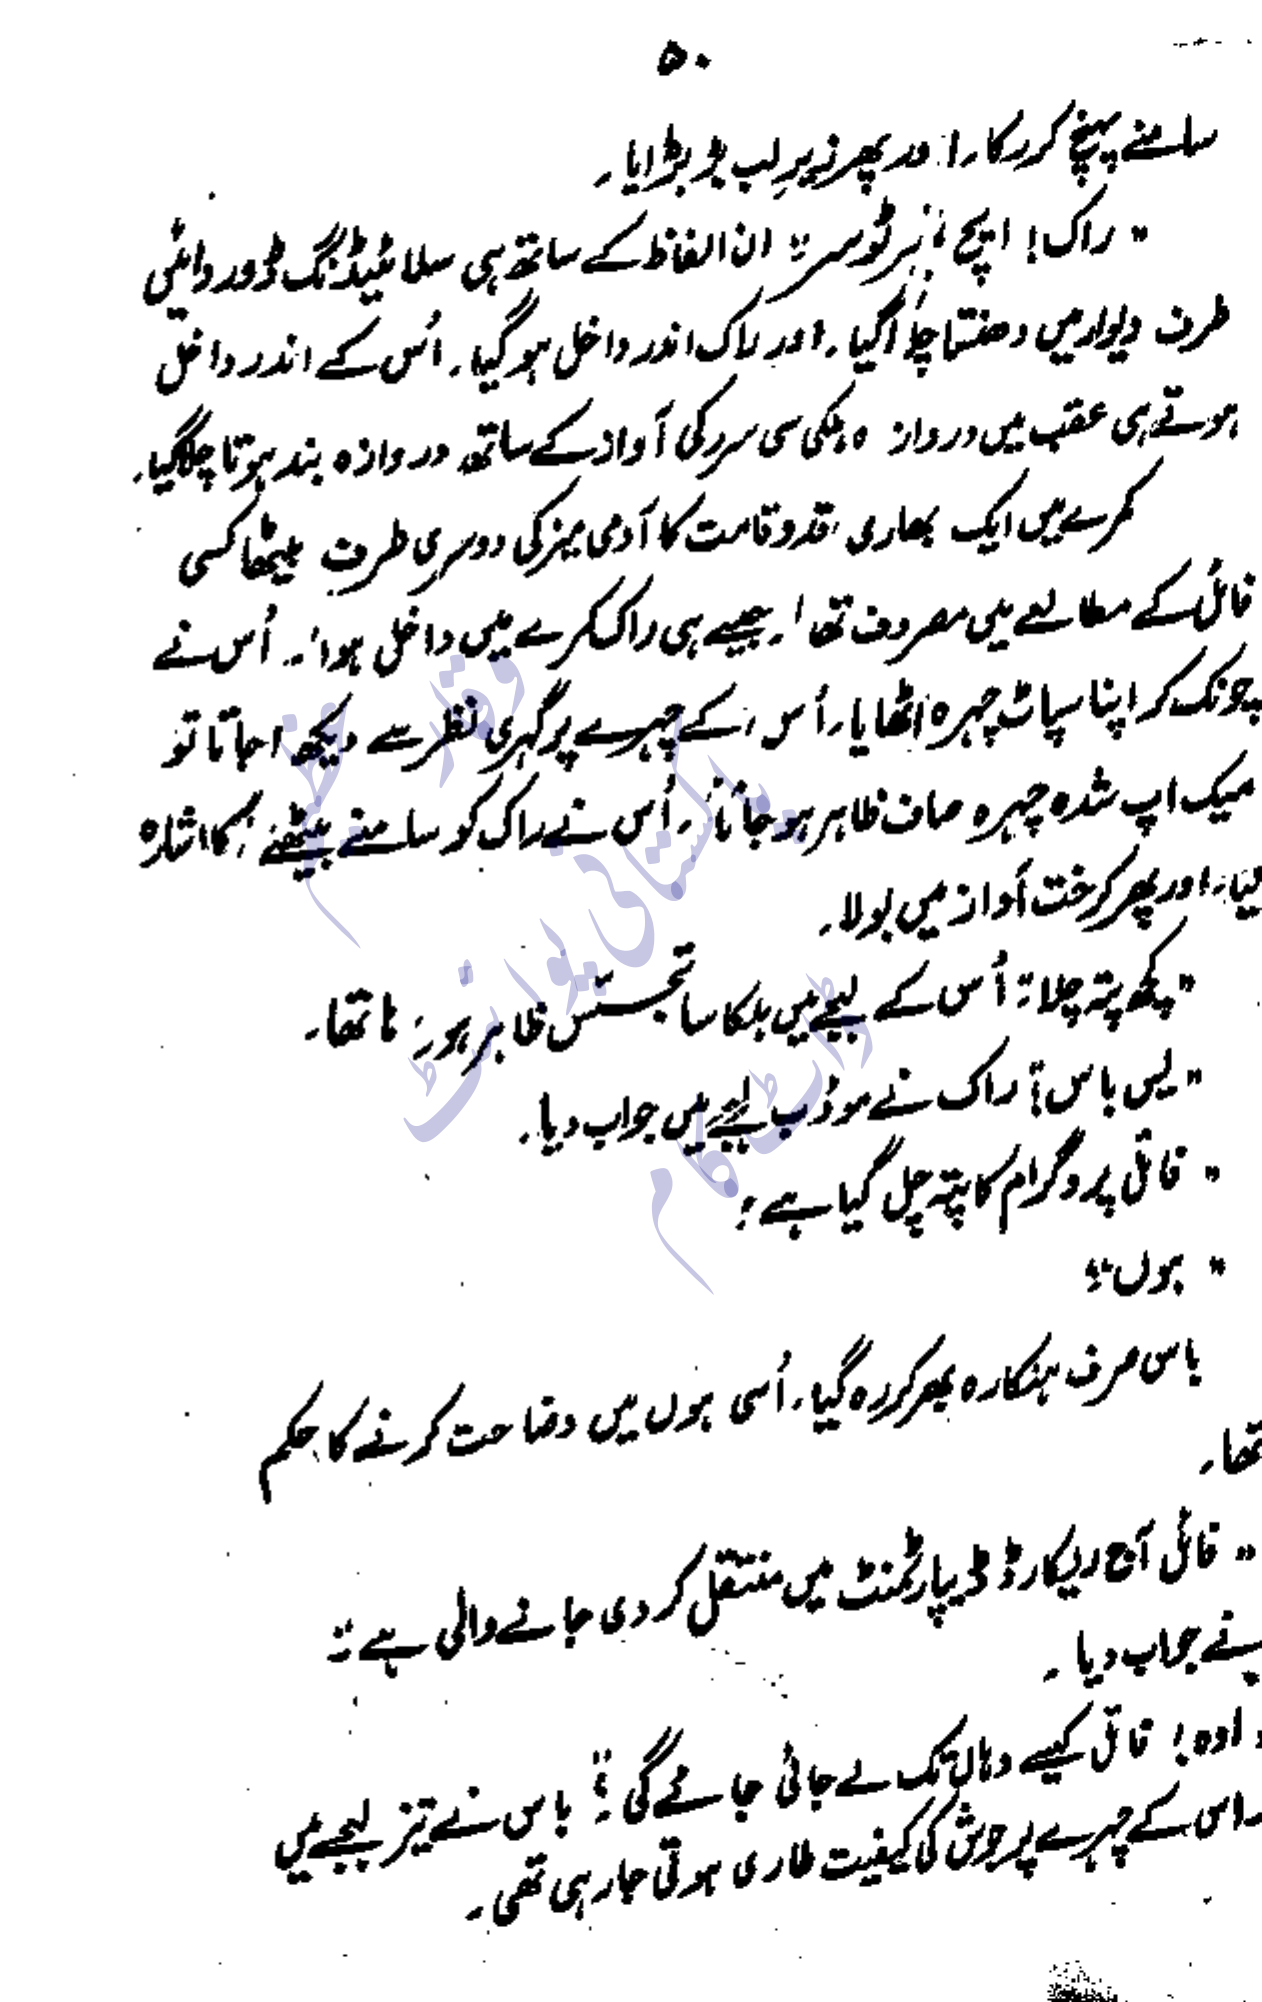 ۵۰
سامنے پہنچ کر رکا۔ اور پھر زیرِ لب بڑبڑایا۔
"راک! ایچ نمبر ٹو سر" ان الفاظ کے ساتھ ہی سلائیڈنگ ڈور دائیں
طرف دیوار میں دھنستا چلا گیا۔ اور راک اندر داخل ہو گیا۔ اُس کے اندر داخل
ہوتے ہی عقب میں دروازہ ہلکی سی سرر کی آواز کے ساتھ دروازہ بند ہوتا چلا گیا۔
کمرے میں ایک بھاری قدوقامت کا آدمی میز کی دوسری طرف بیٹھا کسی
فائل کے مطالعے میں مصروف تھا۔ جیسے ہی راک کمرے میں داخل ہوا۔ اُس نے
چونک کر اپنا سپاٹ چہرہ اٹھایا۔ اُس کے چہرے پر گہری نظر سے دیکھا جاتا تو
میک اپ شدہ چہرہ صاف ظاہر ہو جاتا۔ اُس نے راک کو سامنے بیٹھنے کا اشارہ
کیا۔ اور پھر کرخت آواز میں بولا۔
"کچھ پتہ چلا" اُس کے لہجے میں ہلکا سا تجسّس ظاہر ہو رہا تھا۔
"یس باس" راک نے مودّب لہجے میں جواب دیا۔
"فائل پروگرام کا پتہ چل گیا ہے"
"ہوں"
باس صرف ہنکارہ بھر کر رہ گیا۔ اُسی ہوں میں وضاحت کرنے کا حکم
تھا۔
"فائل آج ریکارڈ ڈیپارٹمنٹ میں منتقل کر دی جانے والی ہے"
نے جواب دیا۔
اوہ! فائل کیسے وہاں تک لے جائی جائے گی؟" باس نے تیز لہجے میں
اس کے چہرے پر جوش کی کیفیت طاری ہوتی جا رہی تھی۔
پاکستانی پوائنٹ
ڈاٹ کام